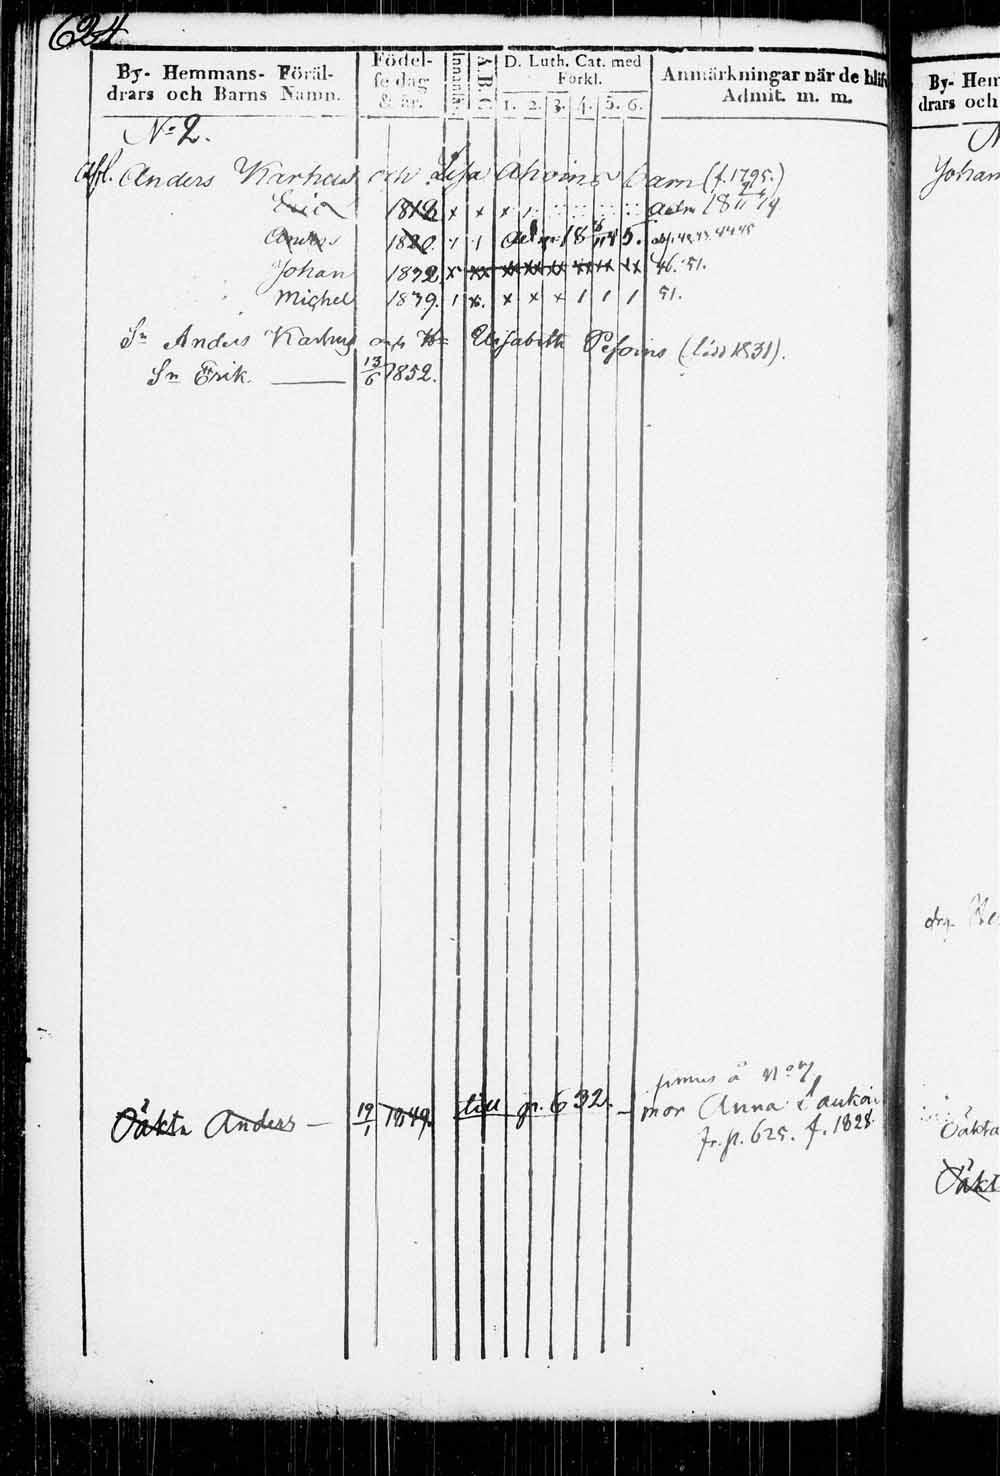 624
By- Hemmans- Föräl-
drars och Barns Namn.
Födel-
se dag
& år.
Innanläs.
A.B.C.
D. Luth. Cat. med
Förkl.
1. 2. 3. 4. 5. 6.
Anmärkningar när de blif
Admit. m. m.
No 2.
Afl. Anders Karhus och Lisa Ahoins barn (f. 1795.)
Eric 1818 x x x Adm 18
Anders 1820 Adm 18 45. 44 45
Johan 1832 46. 51.
Michel 1839. 1 x x x x 1 1 1 51.
Sn Anders Karhus och Elisabeth Pesoins (född 1831).
Sn Erik. 13/6 1852.
Oäkta Anders — 19/1 1849. till p. 632. —
finnes å No 7
mor Anna
fr. p. 625. f. 1828.
By- Hem
drars och
N
Johan
Oäkta
Oäkt